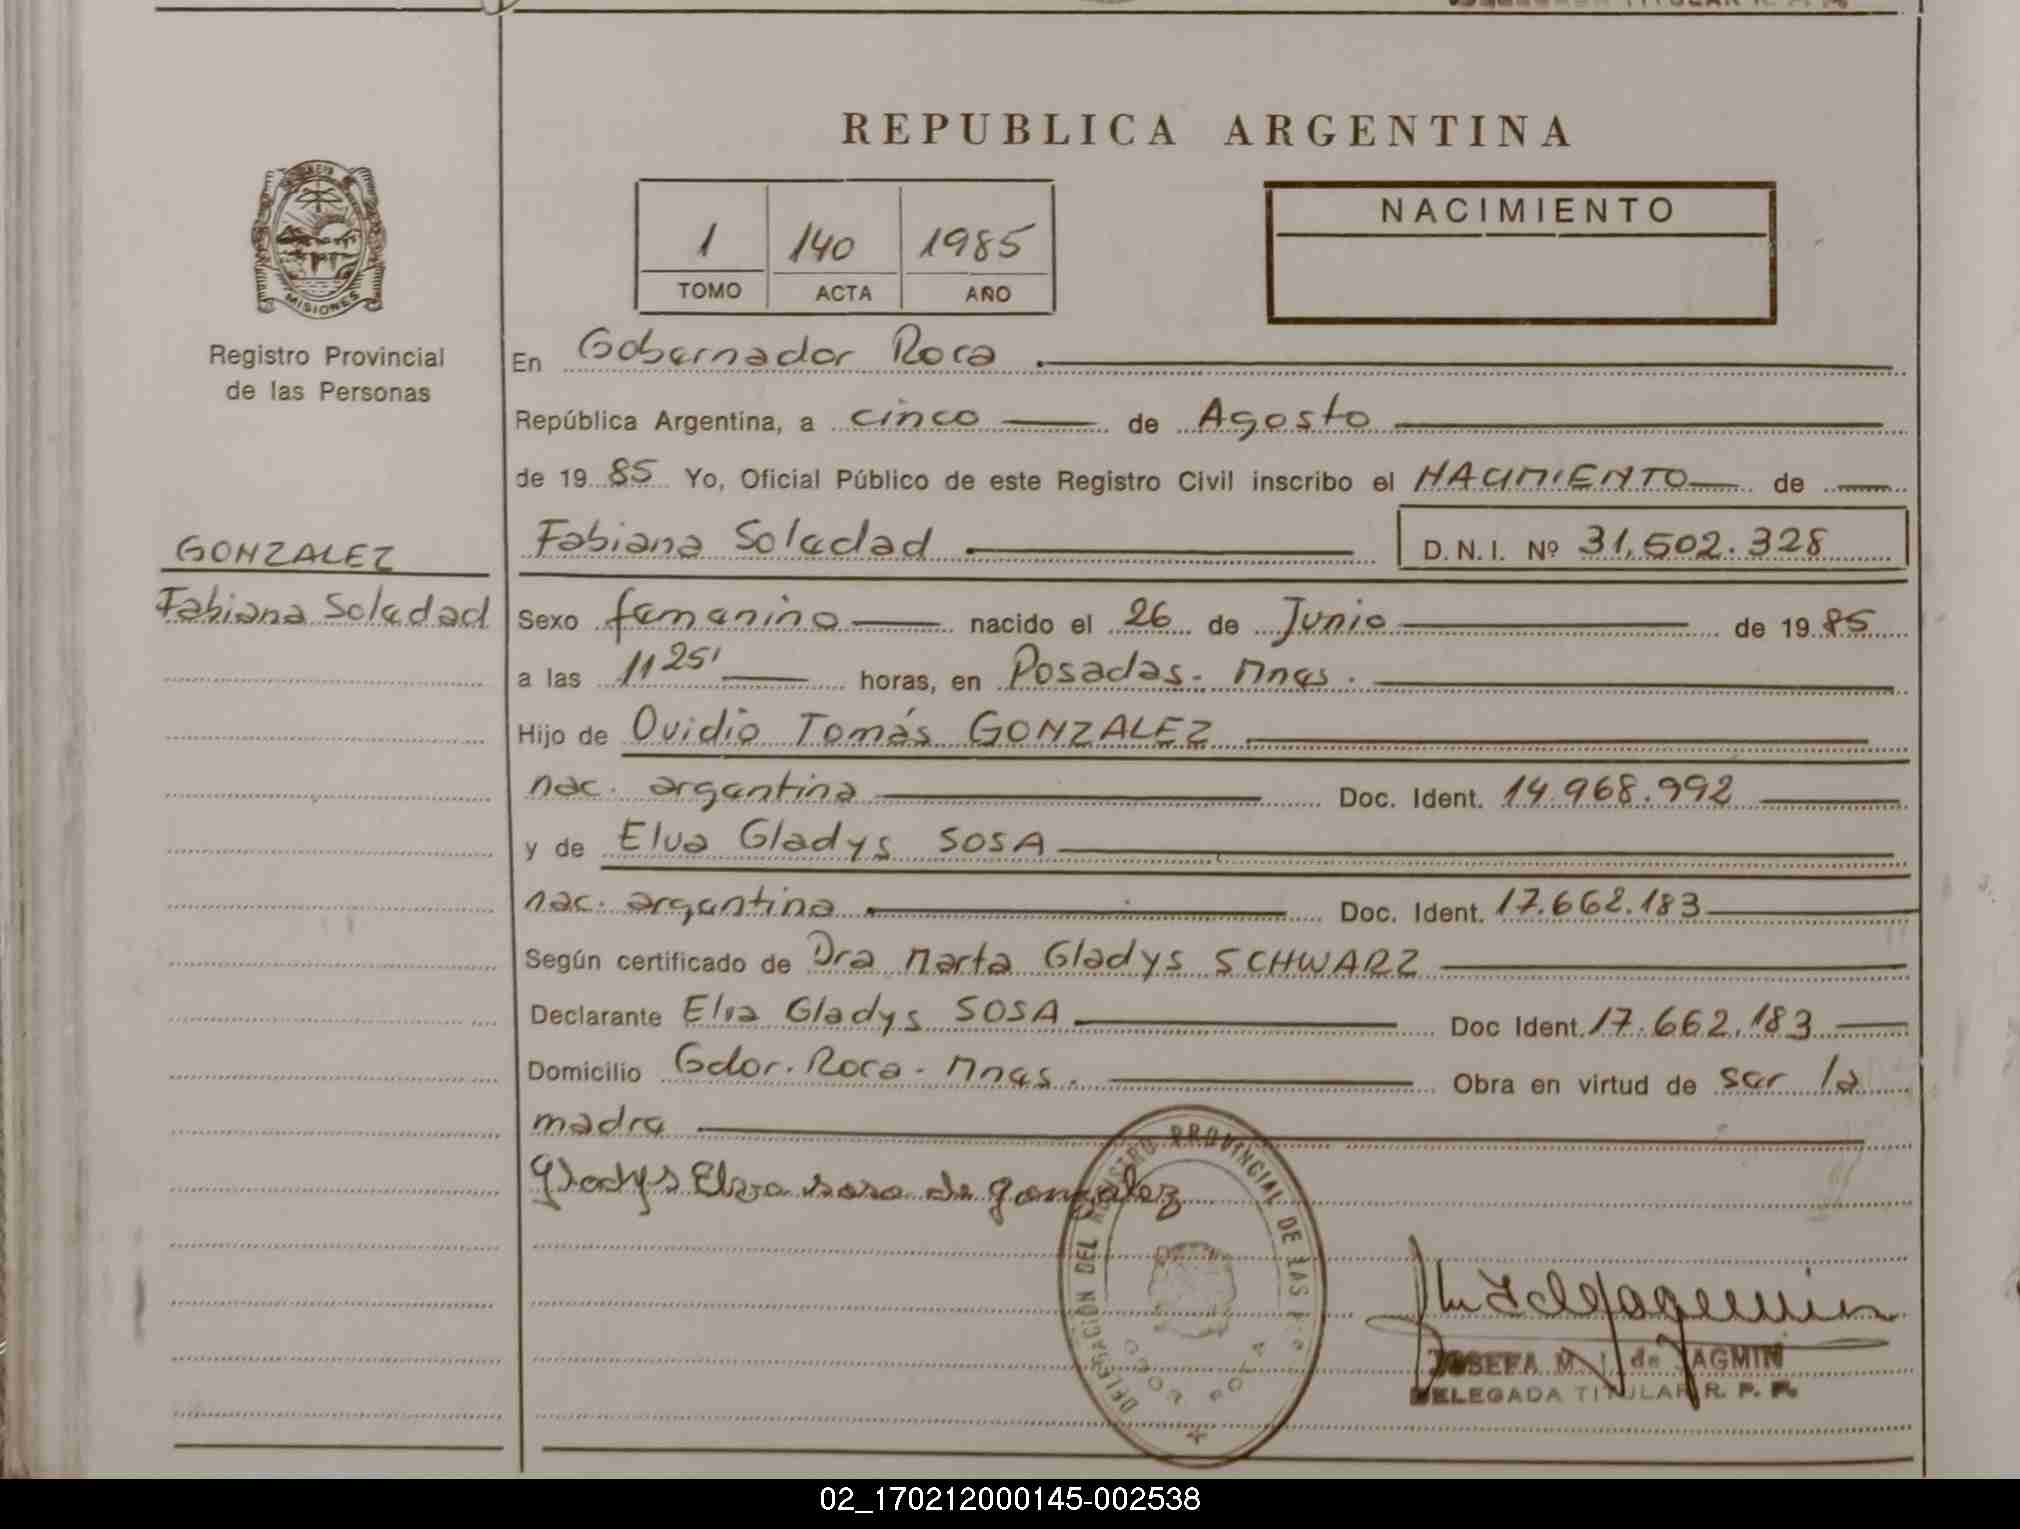 REPUBLICA ARGENTINA
MISIONES
Registro Provincial
de las Personas
1 140 1985
TOMO ACTA AÑO
NACIMIENTO
En Gobernador Roca
República Argentina, a cinco de Agosto
de 19 85 Yo, Oficial Público de este Registro Civil inscribo el NACIMIENTO de
GONZALEZ
Fabiana Soledad
Fabiana Soledad D. N. I. Nº 31.502.328
Sexo femenino nacido el 26 de Junio de 19 85
a las 11 25' horas, en Posadas - Mnes.
Hijo de Ovidio Tomás GONZALEZ
nac. argentina Doc. Ident. 14.968.992
y de Elva Gladys SOSA
nac. argentina Doc. Ident. 17.662.183
Según certificado de Dra Marta Gladys SCHWARZ
Declarante Elva Gladys SOSA Doc Ident. 17.662.183
Domicilio Gdor. Roca - Mnes. Obra en virtud de ser la
madre
Gladys Elva sosa de gonzalez
DELEGACIÓN DEL REGISTRO PROVINCIAL DE LAS
GDOR ROCA
JOSEFA M. de JAGMIN
DELEGADA TITULAR R. P. P.
02_170212000145-002538